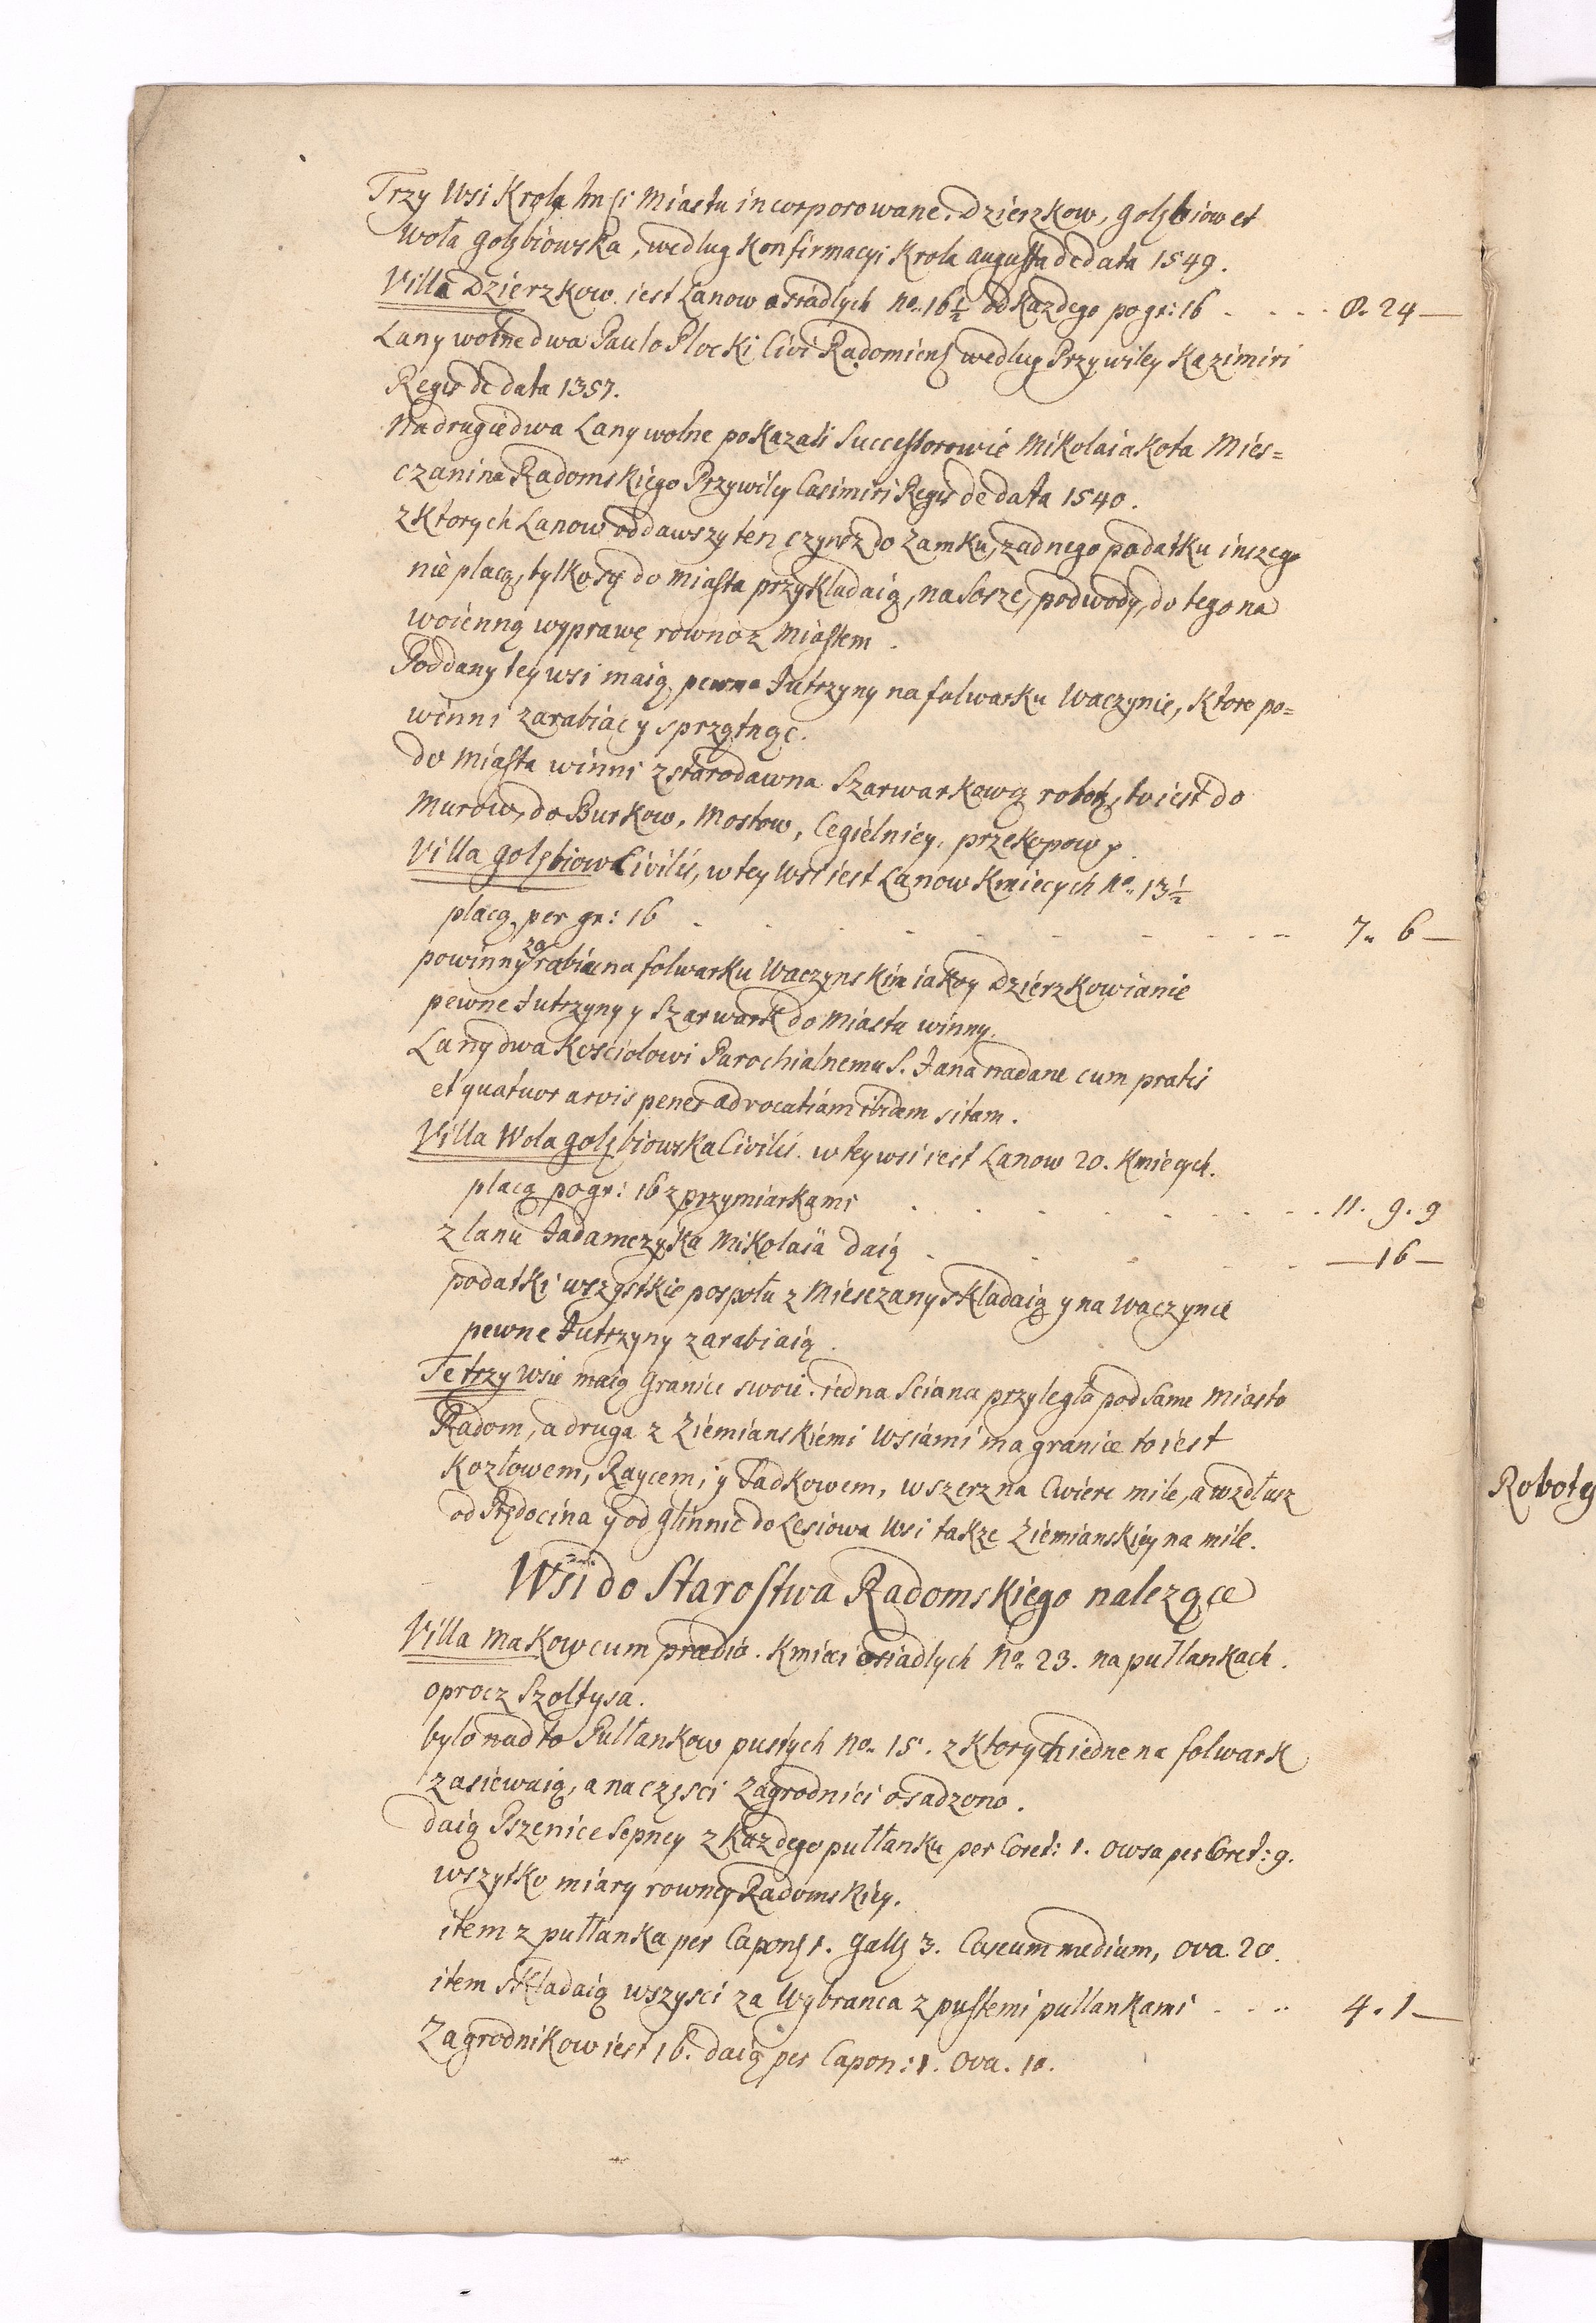 Trzy Wsi Krola Jmsci Miastu incorporowane. Dzierzkow, Golębiow et
Wola Golębiowska, wedlug Konfirmacyi Krola Augusta de data 1549.
Villa Dzierzkow iest Lanow osiadlych No. 16½ od Kazdego po gr: 16 . . . . 8. 24 —
Lany wolne dwa Paulo Plocki Civi Radomiens wedlug Przywiley Kazimiri
Regis de data 1357.
Na drugie dwa Lany wolne pokazali Successorowie Mikolaia Kota Mies=
czanina Radomskiego Przywiley Casimiri Regis de data 1540.
z Ktorych Lanow oddawszy ten czynsz do Zamku, zadnego podatku inszego
nie placą, tylko się do Miasta przykladaią, na Szosze, podwody, do tego na
woienną wyprawę rowno z Miastem.
Poddany tey wsi maią pewne Jutrzyny na folwarku Waczynie, Ktore po=
winni zarabiac y sprzątnąc.
do Miasta winni z starodawna Szarwarkową robotę, to iest do
Murow, do Burkow, Mostow, Cegielniey, przekopow
Villa Golębiow Civilis, w tey Wsi iest Lanow Kmiecych No. 13½
placą per gr: 16 . . . . . . . . 7. 6 —
powinny zarabiac na folwarku Waczynskim iako y Dzierzkowianie
pewne Jutrzyny y Szarwark do Miasta winny.
Lany dwa Kosciolowi Parochialnemu S. Jana nadane cum pratis
et quatuor arvis penes advocatiam ibidem sitam.
Villa Wola Golębiowska Civilis. w tey wsi iest Lanow 20. Kmiecych.
placą po gr: 16 z przymiarkami . . . . . . . . 11. 9. 9
z lanu Jadamczyka Mikolaia daią . . . . . — 16 —
podatki wszystkie pospołu z Miesczany skladaią y na Waczynie
pewne Jutrzyny zarabiaią.
Te trzy Wsie maią Granice swoie. iedna Sciana przyległa pod same Miasto
Radom, a druga z Ziemianskiemi Wsiami ma granice to iest
Kozłowem, Raycem, y Jadkowem, wszerz na Cwierc mile, a wzdłusz
od Stędocina y od Glinnic do Lesiowa Wsi takze Ziemianskiey na mile.
Wsi do Starostwa Radomskiego nalezące
Villa Makow cum praedio. Kmieci osiadlych No. 23. na pułlankach.
oprocz Szoltysa.
bylo nadto Pułlankow pustych No. 15. z Ktorych iedne na folwark
zasiewaią, a na częsci Zagrodnici osadzono.
daią Pszenice Sepney z Kazdego pułłanku per Coret: 1. Owsa per Coret: 9.
wszytko miary rowney Radomskiey.
item z pułlanka per Capon 1. Gall 3. Caseum medium, Ova. 20.
item skladaią wszysci za Wybranca z pustemi pullankami . . . 4. 1 —
Zagrodnikow iest 16. daią per Capon: 1. Ova. 10.
Roboty